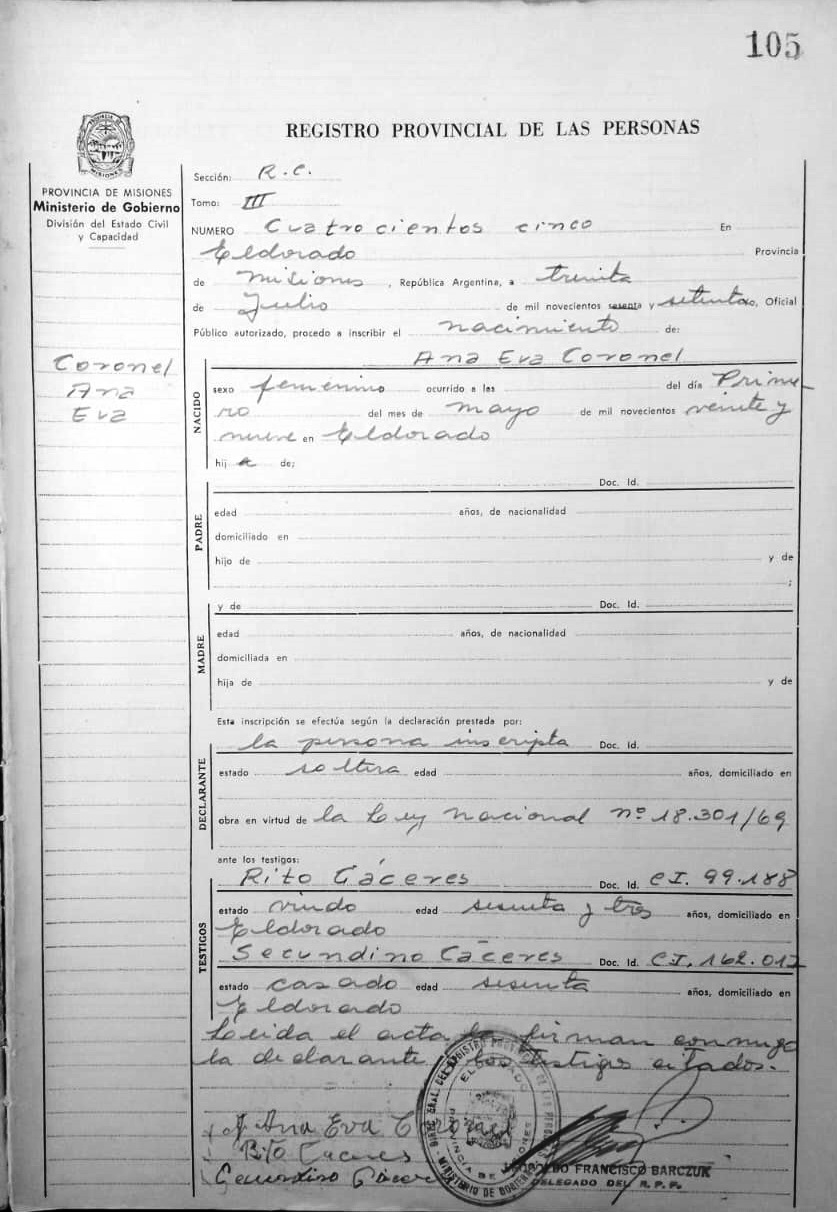 105
REGISTRO PROVINCIAL DE LAS PERSONAS
PROVINCIA DE MISIONES
PROVINCIA DE MISIONES
Ministerio de Gobierno
División del Estado Civil
y Capacidad
Coronel
Ana
Eva
Sección: R.C.
Tomo: III
NUMERO Cuatrocientos cinco En
Eldorado Provincia
de Misiones, República Argentina, a treinta
de Julio de mil novecientos sesenta y setenta, Oficial
Público autorizado, procedo a inscribir el nacimiento de:
Ana Eva Coronel
NACIDO
sexo femenino ocurrido a las del día Prime-
ro del mes de mayo de mil novecientos veinte y
nueve en Eldorado
hija de:
Doc. Id.
PADRE
edad años, de nacionalidad
domiciliado en
hijo de y de
;
y de Doc. Id.
MADRE
edad años, de nacionalidad
domiciliada en
hija de y de
Esta inscripción se efectúa según la declaración prestada por:
la persona inscripta Doc. Id.
DECLARANTE
estado soltera edad años, domiciliado en
obra en virtud de la Ley Nacional nº 18.301/69
ante los testigos:
Rito Cáceres Doc. Id. CI. 99.188
TESTIGOS
estado viudo edad sesenta y tres años, domiciliado en
Eldorado
Secundino Cáceres Doc. Id. CI. 162.017
estado casado edad sesenta años, domiciliado en
Eldorado
Leida el acta la firman conmigo
la declarante y los testigos citados.
Ana Eva Coronel
Rito Caceres
Secundino Cácere
DIREC. GRAL. DEL REGISTRO PROVINCIAL DE LAS PERSONAS
ELDORADO
PROVINCIA DE MISIONES
MINISTERIO DE GOBIERNO
LEOPOLDO FRANCISCO BARCZUK
DELEGADO DEL R. P. P.